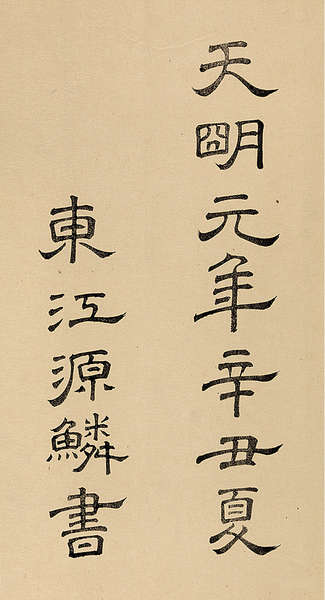 天明元年辛丑夏
東江源鱗書